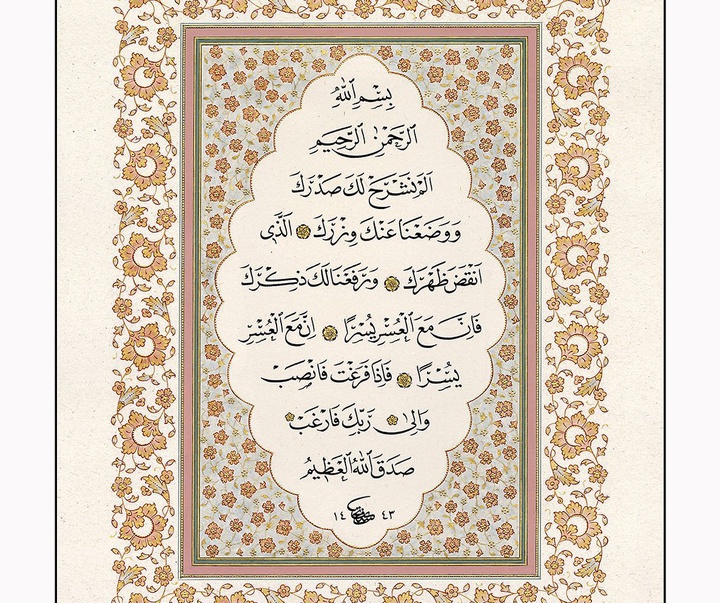 بِسْمِ اللّٰهِ
الرَّحْمٰنِ الرَّحِيمِ
اَلَمْ نَشْرَحْ لَكَ صَدْرَكَ
وَوَضَعْنَا عَنْكَ وِزْرَكَ اَلَّذٖى
اَنْقَضَ ظَهْرَكَ وَرَفَعْنَا لَكَ ذِكْرَكَ
فَاِنَّ مَعَ الْعُسْرِ يُسْرًا اِنَّ مَعَ الْعُسْرِ
يُسْرًا فَاِذَا فَرَغْتَ فَانْصَبْ
وَاِلٰى رَبِّكَ فَارْغَبْ
صَدَقَ اللّٰهُ الْعَظٖيمُ
١٤ ٤٣